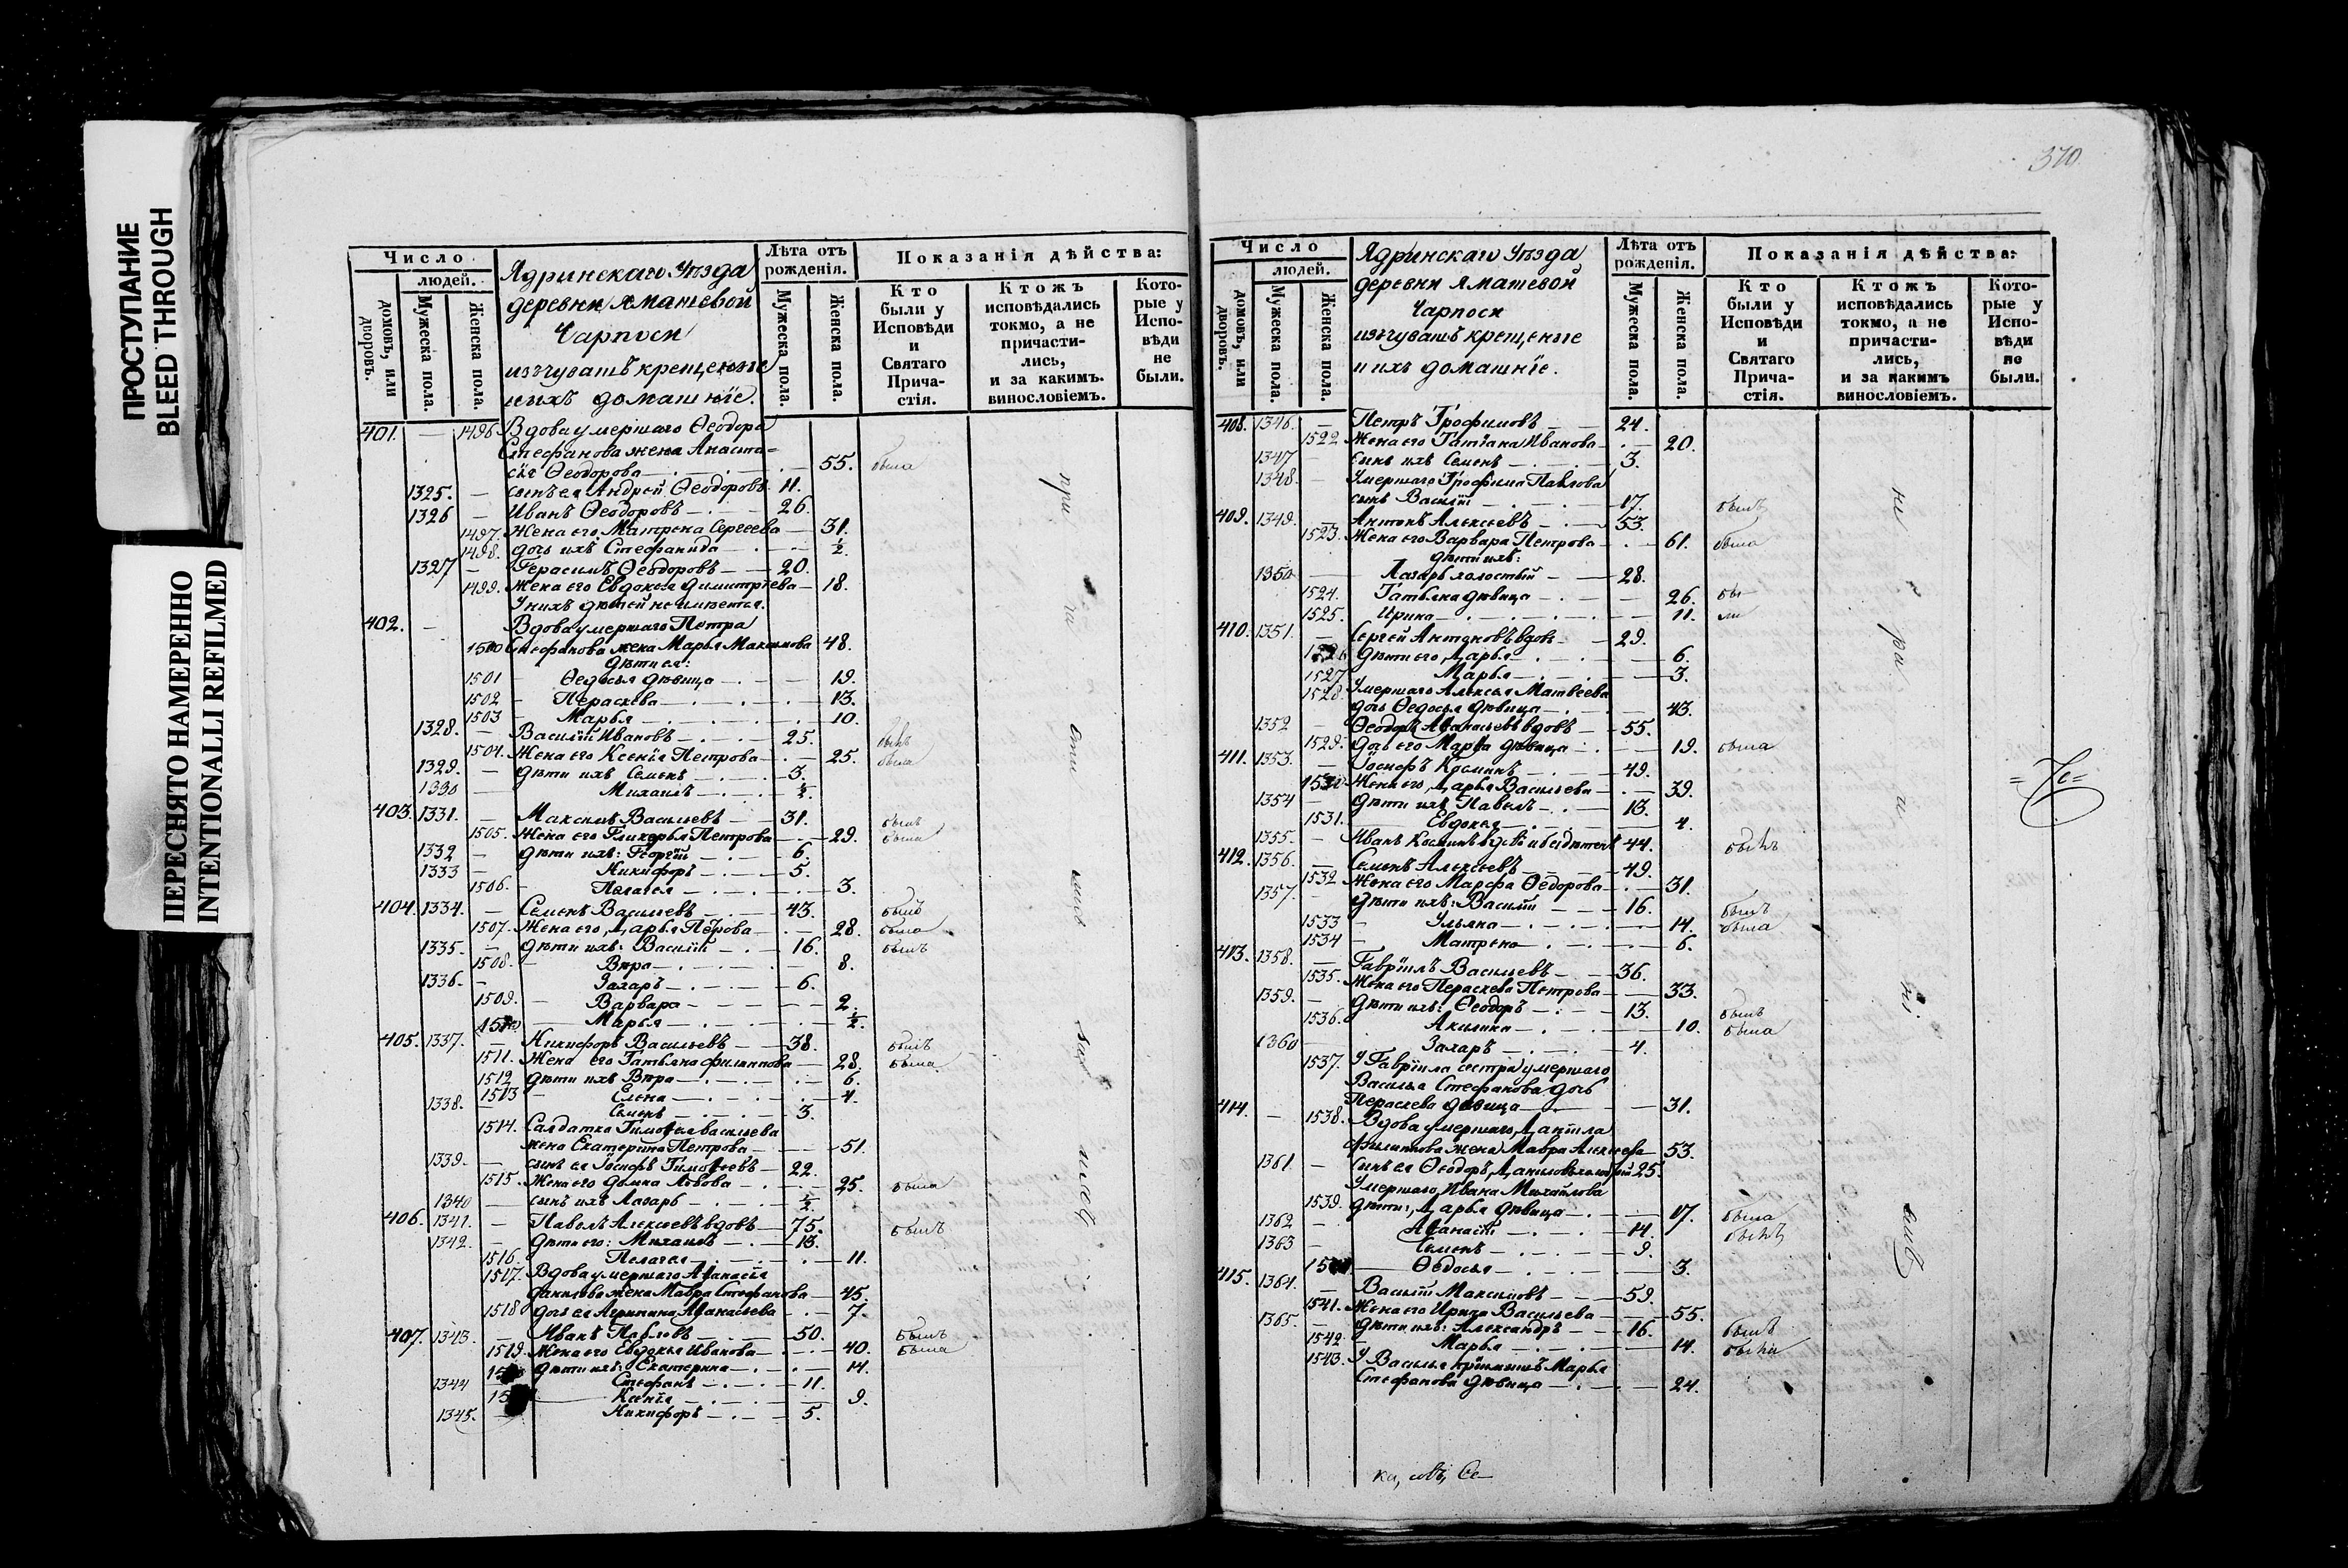 ПРОСТУПАНИЕ
BLEED THROUGH
ПЕРЕСНЯТО НАМЕРЕННО
INTENTIONALLI REFILMED
Число
людей.
домовъ, или дворовъ.
Мужеска пола.
Женска пола.
Ядринскаго Уѣзда
деревни Яматевой
Чарпоси
изъ чувашъ крещеные
и ихъ домашнїе.
Лѣта отъ рожденія.
Мужеска пола.
Женска пола.
Показанія дѣйства:
Кто были у Исповѣди и Святаго Прича-стія.
Ктожъ исповѣдались токмо, а не причасти-лись, и за какимъ. винословіемъ.
Кото-рые у Испо-вѣди не были.
401. — 1496 Вдова умершаго Ѳеодора
Стефанова жена Анаста=
сїя Ѳеодорова — 55. была
1325. — сынъ ея Андрей Ѳеодоровъ 11.
1326 — Иванъ Ѳеодоровъ — 26.
1497. Жена его Матрена Сергеева — 31.
1498. дочь ихъ Стефанида — ½.
1327 — Герасимъ Ѳеодоровъ — 20.
1499. Жена его Евдокья Димитрїева — 18.
У нихъ дѣтей не имѣется.
402. — Вдова умершаго Петра
1500 Стефанова жена Марья Максимова 48.
Дѣти ея:
1501 — Ѳедосья дѣвица — 19.
1502 — Параскева — 13.
1503 — Марья — 10.
1328. — Василїй Ивановъ — 25. былъ
1504. Жена его Ксенїя Петрова — 25. была
1329. — дѣти ихъ Семенъ — 3.
1330 — Михаилъ — ½.
403. 1331. — Максимъ Васильевъ — 31. былъ
1505. Жена его Гликерья Петрова — 29. была
1332 — дѣти ихъ: Георгїй — 6.
1333 — Никифоръ — 5.
1506. — Пелагея — 3.
404. 1334. — Семенъ Васильевъ — 43. былъ
1507. Жена его Дарья Петрова — 28. была
1335. — дѣти ихъ: Василїй — 16. былъ
1508. — Вѣра — 8.
1336. — Захаръ — 6.
1509. — Варвара — 2.
1510. — Марья — ½.
405. 1337. — Никифоръ Васильевъ — 38. былъ
1511. Жена его Татьяна Филиппова — 28. была
1512 дѣти ихъ Вѣра — 6.
1513 — Елена — 4.
1338. — Семенъ — 3.
1514. Салдатка Тимоѳея Васильева
жена Екатерина Петрова — 51.
1339. — сынъ ея Їосифъ Тимоѳеевъ — 22.
1515. Жена его Домна Львова — 25. была
1340 — сынъ ихъ Лазарь — ½
406. 1341. — Павелъ Алексѣевъ вдовъ — 75. былъ
1342. — Дѣти его: Михаилъ — 13.
1516. Пелагея — 11.
1517. Вдова умершаго Аѳанасїя
Данилова жена Мавра Стефанова — 45.
1518 дочь ея Агрипина Аѳанасьева — 7.
407. 1343. — Иванъ Павловъ — 50. былъ
1519. Жена его Евдокья Иванова — 40. была
дѣти ихъ: Екатерина — 14.
1344 Стефанъ — 11.
Ксенїя — 9.
1345. — Никифоръ — 5.
370
Число
людей.
домовъ, или дворовъ.
Мужеска пола.
Женска пола.
Ядринскаго Уѣзда
деревни Яматевой
Чарпоси
изъ чувашъ крещеные
и ихъ домашнїе.
Лѣта отъ рожденія.
Мужеска пола.
Женска пола.
Показанія дѣйства:
Кто были у Исповѣди и Святаго Прича-стія.
Ктожъ исповѣдались токмо, а не причасти-лись, и за какимъ винословіемъ.
Кото-рые у Испо-вѣди не были.
408. 1346. — Петръ Трофимовъ — 24.
1522 Жена его Татїана Иванова — 20.
1347 — сынъ ихъ Семенъ — 3.
1348. — Умершаго Трофима Павлова
сынъ Василїй — 17. былъ
409. 1349. — Антонъ Алексѣевъ — 53.
1523. Жена его Варвара Петрова — 61. была
Дѣти ихъ:
1350 — Лазарь холостый — 28.
1524. Татьяна дѣвица — 26. бы
1525. Ирина — 11. ли
410. 1351. — Сергей Антоновъ вдовъ — 29.
1526 Дѣти его Дарья — 6.
1527 Марья — 3.
1528. Умершаго Алексѣя Матвѣева
дочь Ѳедосья дѣвица — 43.
1352 — Ѳеодоръ Аѳанасьевъ вдовъ — 55.
1529. дочь его Марѳа дѣвица — 19. была
411. 1353. — Їосифъ Косминъ — 49.
1530. Жена его Дарья Васильева — 39.
1354 — дѣти ихъ Павелъ — 13.
1531. Евдокья — 4.
1355. — Иванъ Косминъ вдовъ и бездѣтенъ 44. былъ
412. 1356. — Семенъ Алексѣевъ — 49.
1532 Жена его Марѳа Ѳедорова — 31.
1357. — Дѣти ихъ: Василїй — 16. былъ
1533 — Ульяна — 14. была
1534 — Матрена — 6.
413. 1358. — Гаврїилъ Васильевъ — 36.
1535. Жена его Параскева Петрова — 33.
1359. — Дѣти ихъ: Ѳеодоръ — 13. былъ
1536. Акилина — 10. была
1360 — Захаръ — 4.
1537. У Гаврїила сестра умершаго
Василья Стефанова дочь
Параскева дѣвица — 31.
414. — 1538. Вдова умершаго Данїила
Филиппова жена Мавра Алексѣева — 53.
1361. — сынъ ея Ѳеодоръ Даниловъ холостый 25.
Умершаго Ивана Михайлова
1539. дѣти: Дарья дѣвица — 17. была
1362 — Аѳанасїй — 14. былъ
1363 — Семенъ — 9.
Ѳедосья — 3.
415. 1364. — Василїй Максимовъ — 59.
1541. Жена его Ирина Васильева — 55.
1365. — Дѣти ихъ: Александръ — 16. былъ
1542 — Марья — 14. была
1543. У Василья прїимышъ Марья
Стефанова дѣвица — 24.